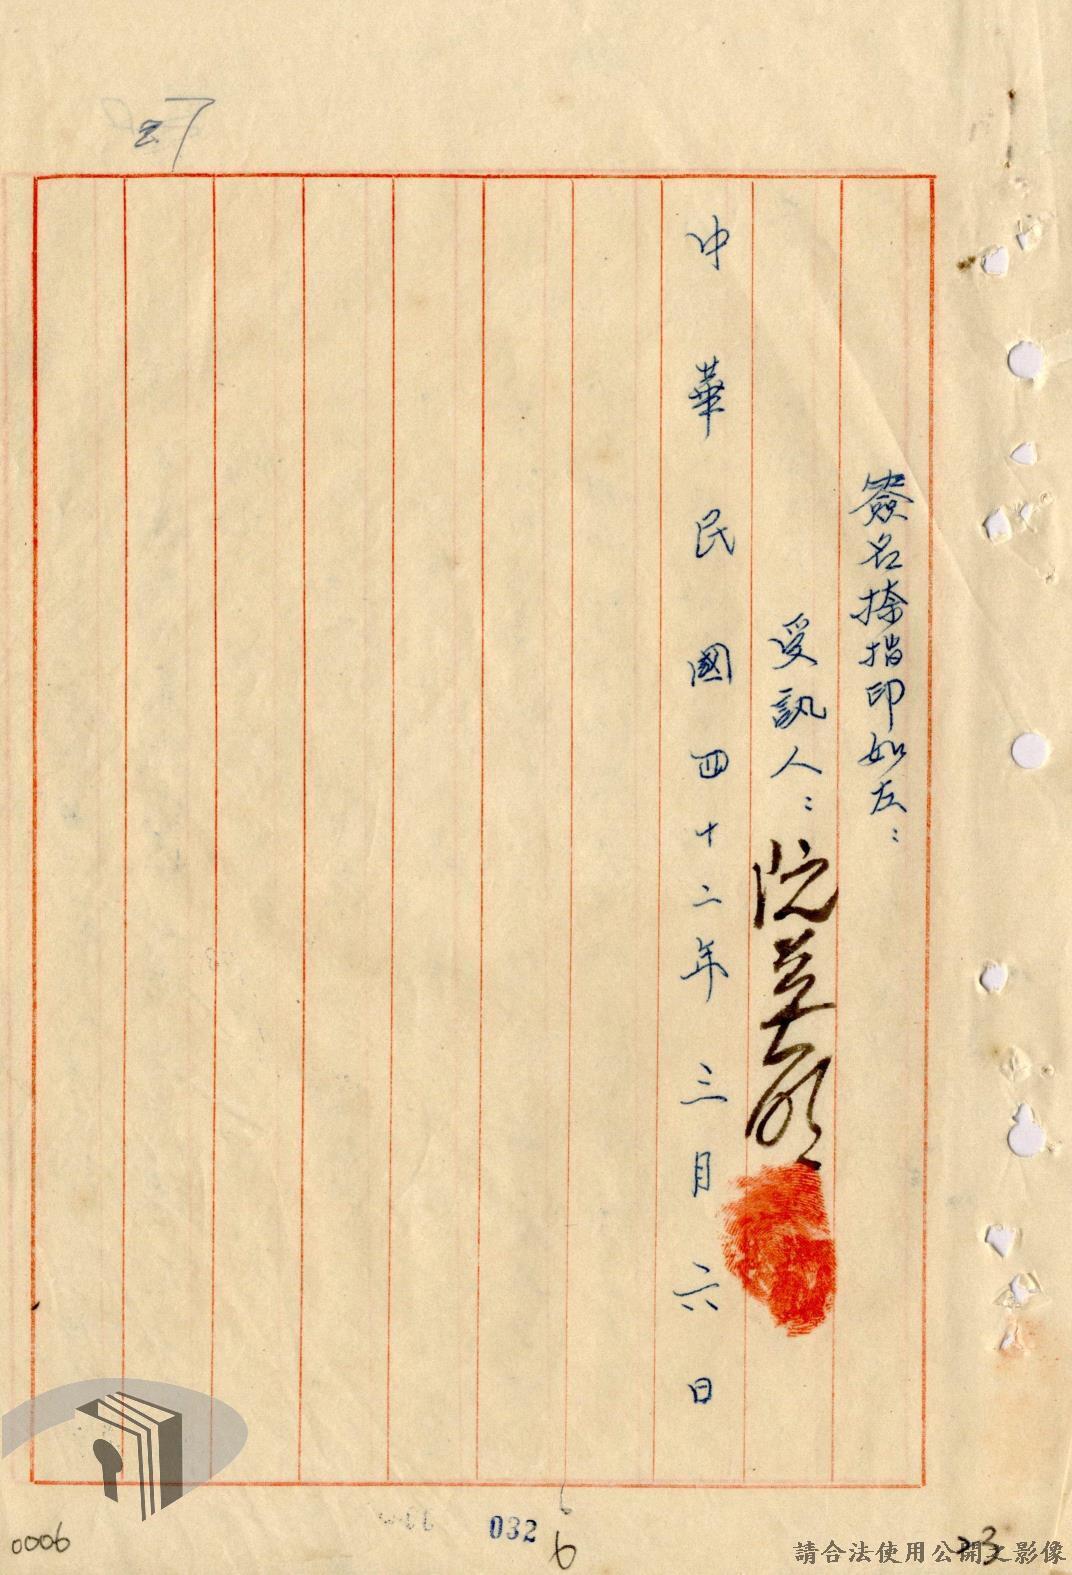 簽名捺指印如左：
受訊人：阮英
中華民國四十二年三月六日
0006
032
6
23
請合法使用公開之影像